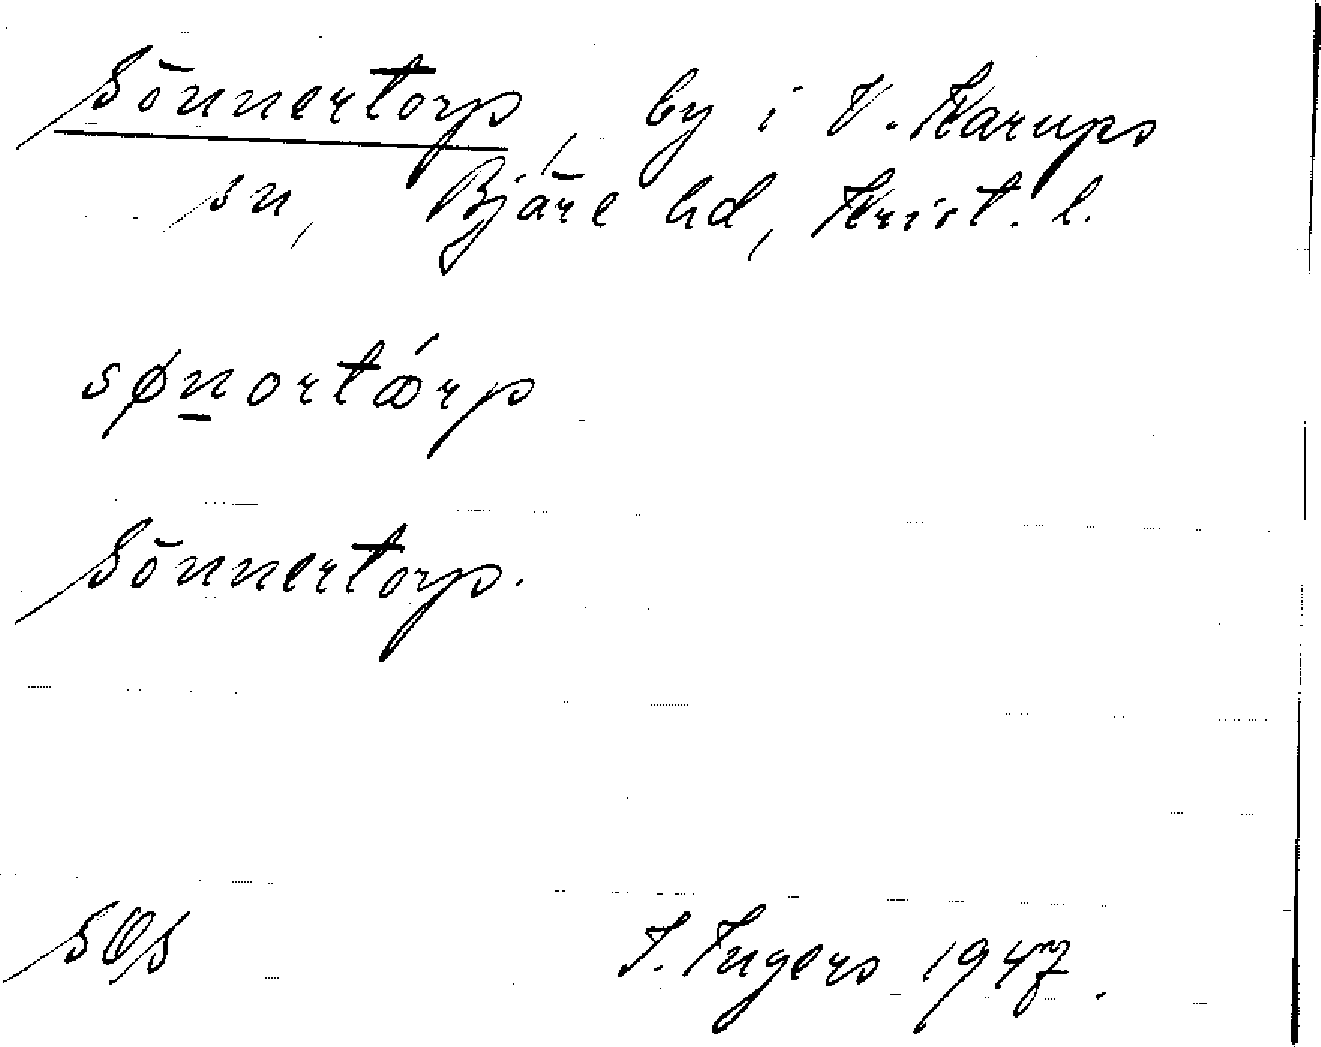 Sönnertorp, by i V. Karups
sn, Bjäre hd, Krist. l.
søn̲ortǿrp
Sönnertorp.
SOS I. Ingers 1947.